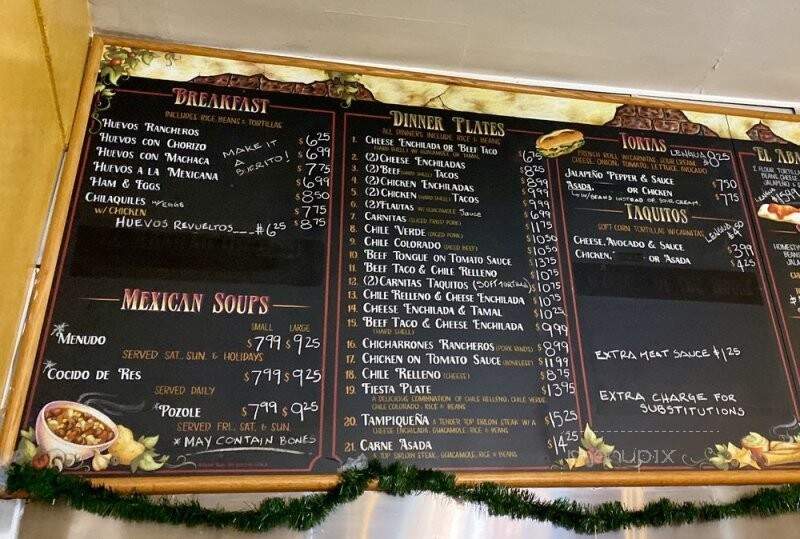 BREAKFAST
INCLUDES RICE, BEANS & TORTILLAS
HUEVOS RANCHEROS $6.25
HUEVOS CON CHORIZO $6.99
HUEVOS CON MACHACA $7.75
HUEVOS A LA MEXICANA $6.99
HAM & EGGS $8.50
CHILAQUILES W/EGGS $7.75
W/ CHICKEN $8.75
MAKE IT
A
BURRITO!
HUEVOS REVUELTOS___$6.25
MEXICAN SOUPS
SMALL LARGE
*MENUDO $7.99 $9.25
SERVED SAT., SUN. & HOLIDAYS
*COCIDO DE RES $7.99 $9.25
SERVED DAILY
*POZOLE $7.99 $9.25
SERVED FRI., SAT. & SUN.
*MAY CONTAIN BONES
DINNER PLATES
ALL DINNERS INCLUDE RICE & BEANS
1. CHEESE ENCHILADA OR BEEF TACO $6.75
2. (2) CHEESE ENCHILADAS $8.25
3. (2) BEEF (HARD SHELL) TACOS $8.99
4. (2) CHICKEN ENCHILADAS $8.99
5. (2) CHICKEN (HARD SHELL) TACOS $9.99
6. (2) FLAUTAS W/ GUACAMOLE Sauce $6.99
7. CARNITAS (SLICED FRIED PORK) $11.75
8. CHILE VERDE (DICED PORK) $10.50
9. CHILE COLORADO (DICED BEEF) $10.50
10. BEEF TONGUE ON TOMATO SAUCE $13.75
11. BEEF TACO & CHILE RELLENO $10.75
12. (2) CARNITAS TAQUITOS (SOFT TORTILLAS) $10.75
13. CHILE RELLENO & CHEESE ENCHILADA $10.75
14. CHEESE ENCHILADA & TAMAL $10.25
15. BEEF TACO & CHEESE ENCHILADA $9.99
(HARD SHELL)
16. CHICHARRONES RANCHEROS (PORK RINDS) $8.99
17. CHICKEN ON TOMATO SAUCE (BONELESS) $11.99
18. CHILE RELLENO (CHEESE) $8.75
19. FIESTA PLATE $13.95
A DELICIOUS COMBINATION OF CHILE RELLENO, CHILE VERDE
CHILE COLORADO, RICE & BEANS
20. TAMPIQUEÑA A TENDER TOP SIRLOIN STEAK W/ A $15.25
CHEESE ENCHILADA, GUACAMOLE, RICE & BEANS
21. CARNE ASADA $14.25
A TOP SIRLOIN STEAK, GUACAMOLE, RICE & BEANS
TORTAS
LENGUA 8.25
FRENCH ROLL W/CARNITAS, SOUR CREAM,
CHEESE, ONION, TOMATO, LETTUCE, AVOCADO
JALAPEÑO PEPPER & SAUCE $7.50
ASADA, OR CHICKEN $7.75
W/BEANS INSTEAD OF SOUR CREAM
TAQUITOS
SOFT CORN TORTILLAS W/CARNITAS,
LENGUA $4.50
CHEESE, AVOCADO & SAUCE $3.99
CHICKEN, OR ASADA $4.25
EXTRA MEAT SAUCE $1.25
EXTRA CHARGE FOR
SUBSTITUTIONS
EL
2 FLOUR
BEANS
menupix